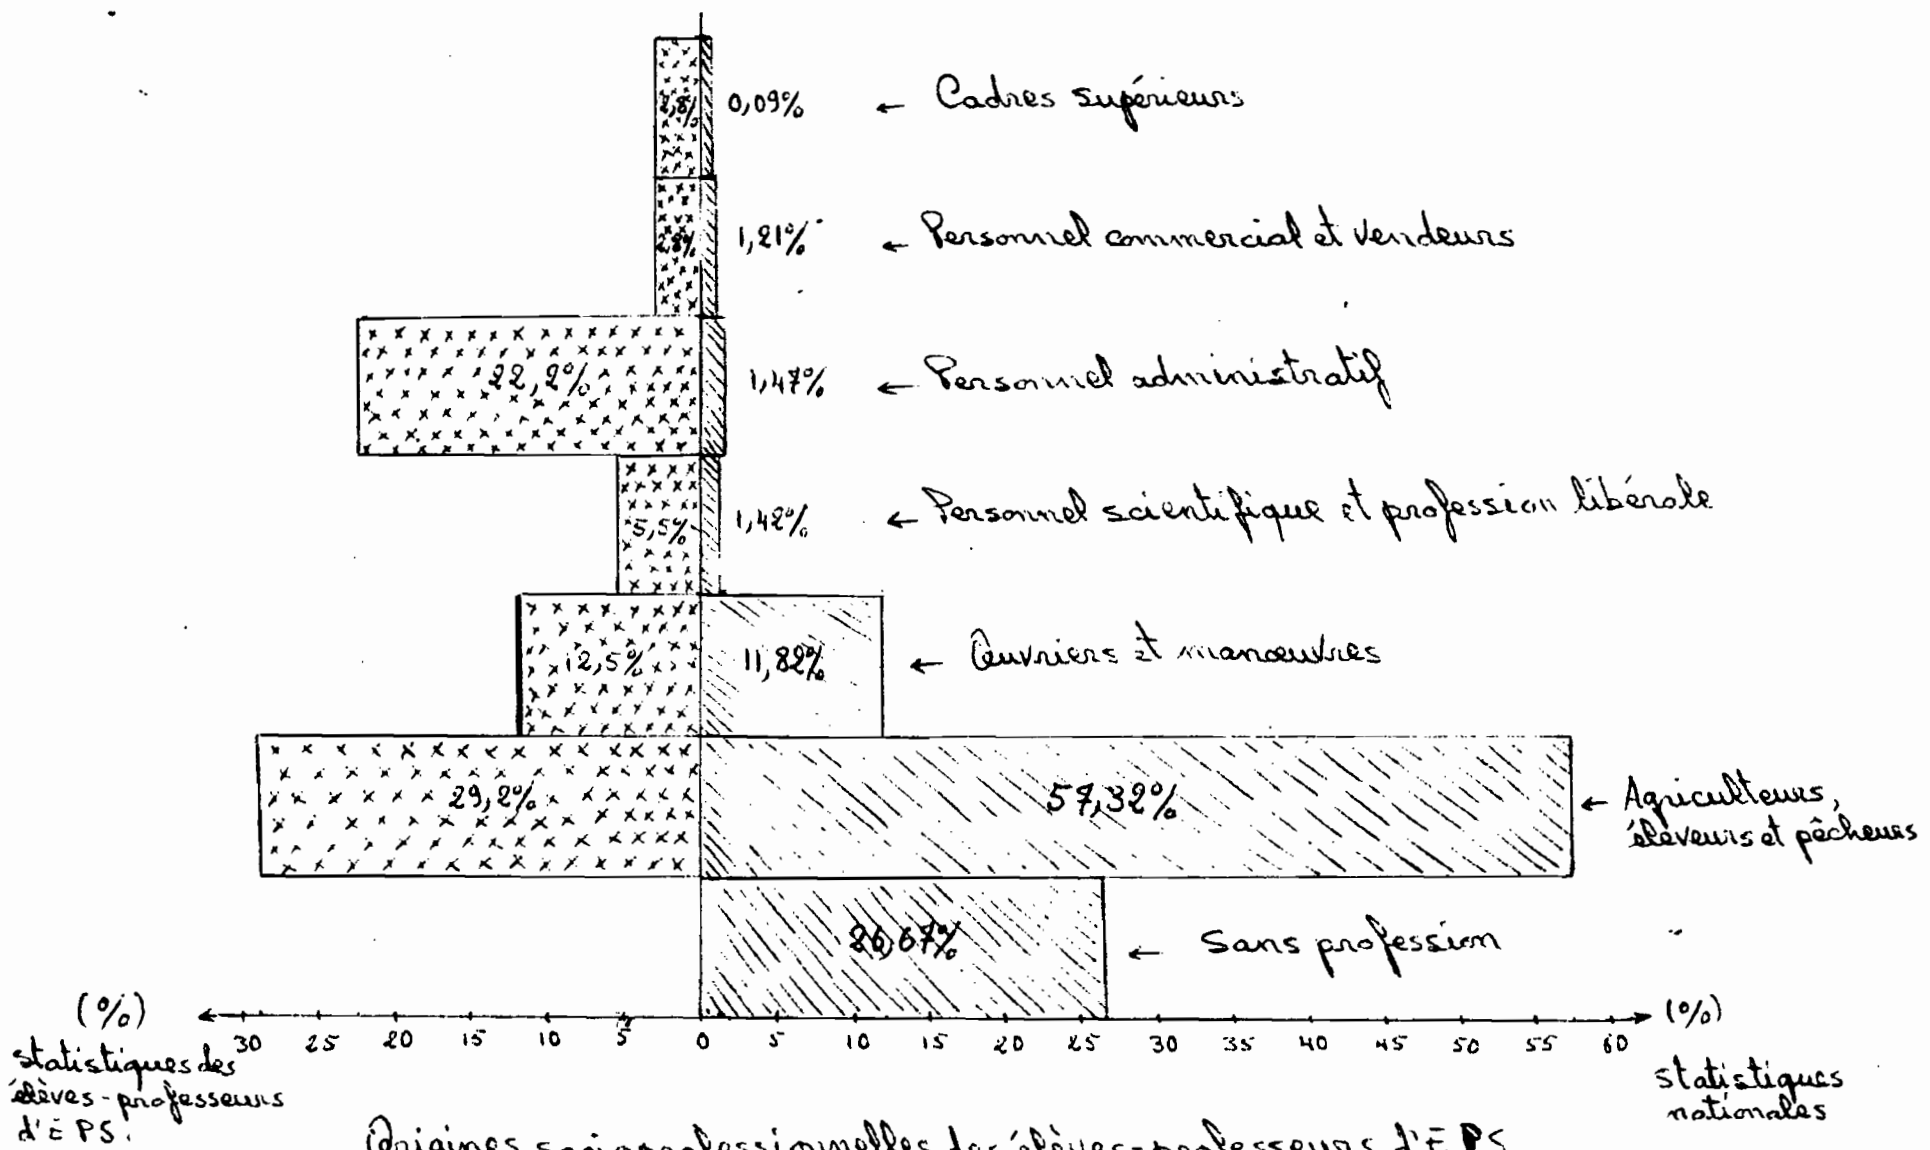 2,8% 0,09% ← Cadres supérieurs
2,8% 1,21% ← Personnel commercial et vendeurs
22,2% 1,47% ← Personnel administratif
5,5% 1,42% ← Personnel scientifique et profession libérale
12,5% 11,82% ← Ouvriers et manœuvres
29,2% 57,32% ← Agriculteurs,
éleveurs et pêcheurs
26,67% ← Sans profession
(%) (%)
30 25 20 15 10 5 0 5 10 15 20 25 30 35 40 45 50 55 60
statistiques des
élèves-professeurs
d'EPS.
statistiques
nationales
Origines socioprofessionnelles des élèves-professeurs d'EPS